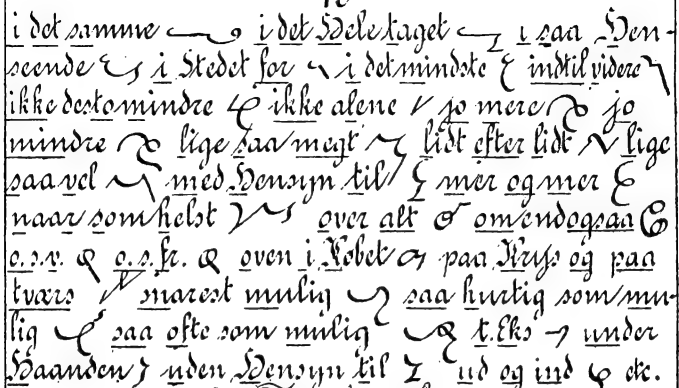 i det samme i det Hele taget i saa Hen-
seende i Stedet for i det mindste indtil videre
ikke desto mindre ikke alene jo mere jo
mindre lige saa megt lidt efter lidt lige
saa vel med Hensyn til mer og mer
naar som helst over alt omendogsaa
o.s.v. o.s.fr. oven i Købet paa Kryds og paa
tværs snarest mulig saa hurtig som mu-
lig saa ofte som mulig t.Eks under
Haanden uden Hensyn til ud og ind etc.